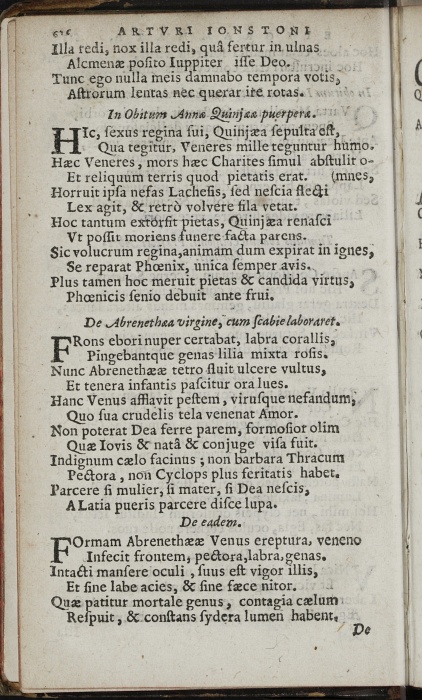 626 ARTVRI IONSTONI
Illa redi, nox illa redi, quâ fertur in ulnas
Alcmenæ posito Iuppiter isse Deo.
Tunc ego nulla meis damnabo tempora votis,
Astrorum lentas nec querar ire rotas.
In Obitum Annæ Quinjææ puerperæ.
HIc, sexus regina sui, Quinjæa sepulta est,
Qua tegitur, Veneres mille teguntur humo.
Hæc Veneres, mors hæc Charites simul abstulit o-
Et reliquum terris quod pietatis erat. (mnes,
Horruit ipsa nefas Lachesis, sed nescia flecti
Lex agit, & retrò volvere fila vetat.
Hoc tantum extorsit pietas, Quinjæa renasci
Vt possit moriens funere facta parens.
Sic volucrum regina, animam dum expirat in ignes,
Se reparat Phœnix, unica semper avis.
Plus tamen hoc meruit pietas & candida virtus,
Phœnicis senio debuit ante frui.
De Abrenethæa virgine, cum scabie laboraret.
FRons ebori nuper certabat, labra corallis,
Pingebantque genas lilia mixta rosis.
Nunc Abrenethææ tetro fluit ulcere vultus,
Et tenera infantis pascitur ora lues.
Hanc Venus afflavit pestem, virusque nefandum,
Quo sua crudelis tela venenat Amor.
Non poterat Dea ferre parem, formosior olim
Quæ Iovis & natâ & conjuge visa fuit.
Indignum cælo facinus; non barbara Thracum
Pectora, non Cyclops plus feritatis habet.
Parcere si mulier, si mater, si Dea nescis,
A Latia pueris parcere disce lupa.
De eadem.
FOrmam Abrenethææ Venus ereptura, veneno
Infecit frontem, pectora, labra, genas.
Intacti mansere oculi, suus est vigor illis,
Et sine labe acies, & sine fæce nitor.
Quæ patitur mortale genus, contagia cælum
Respuit, & constans sydera lumen habent.
De